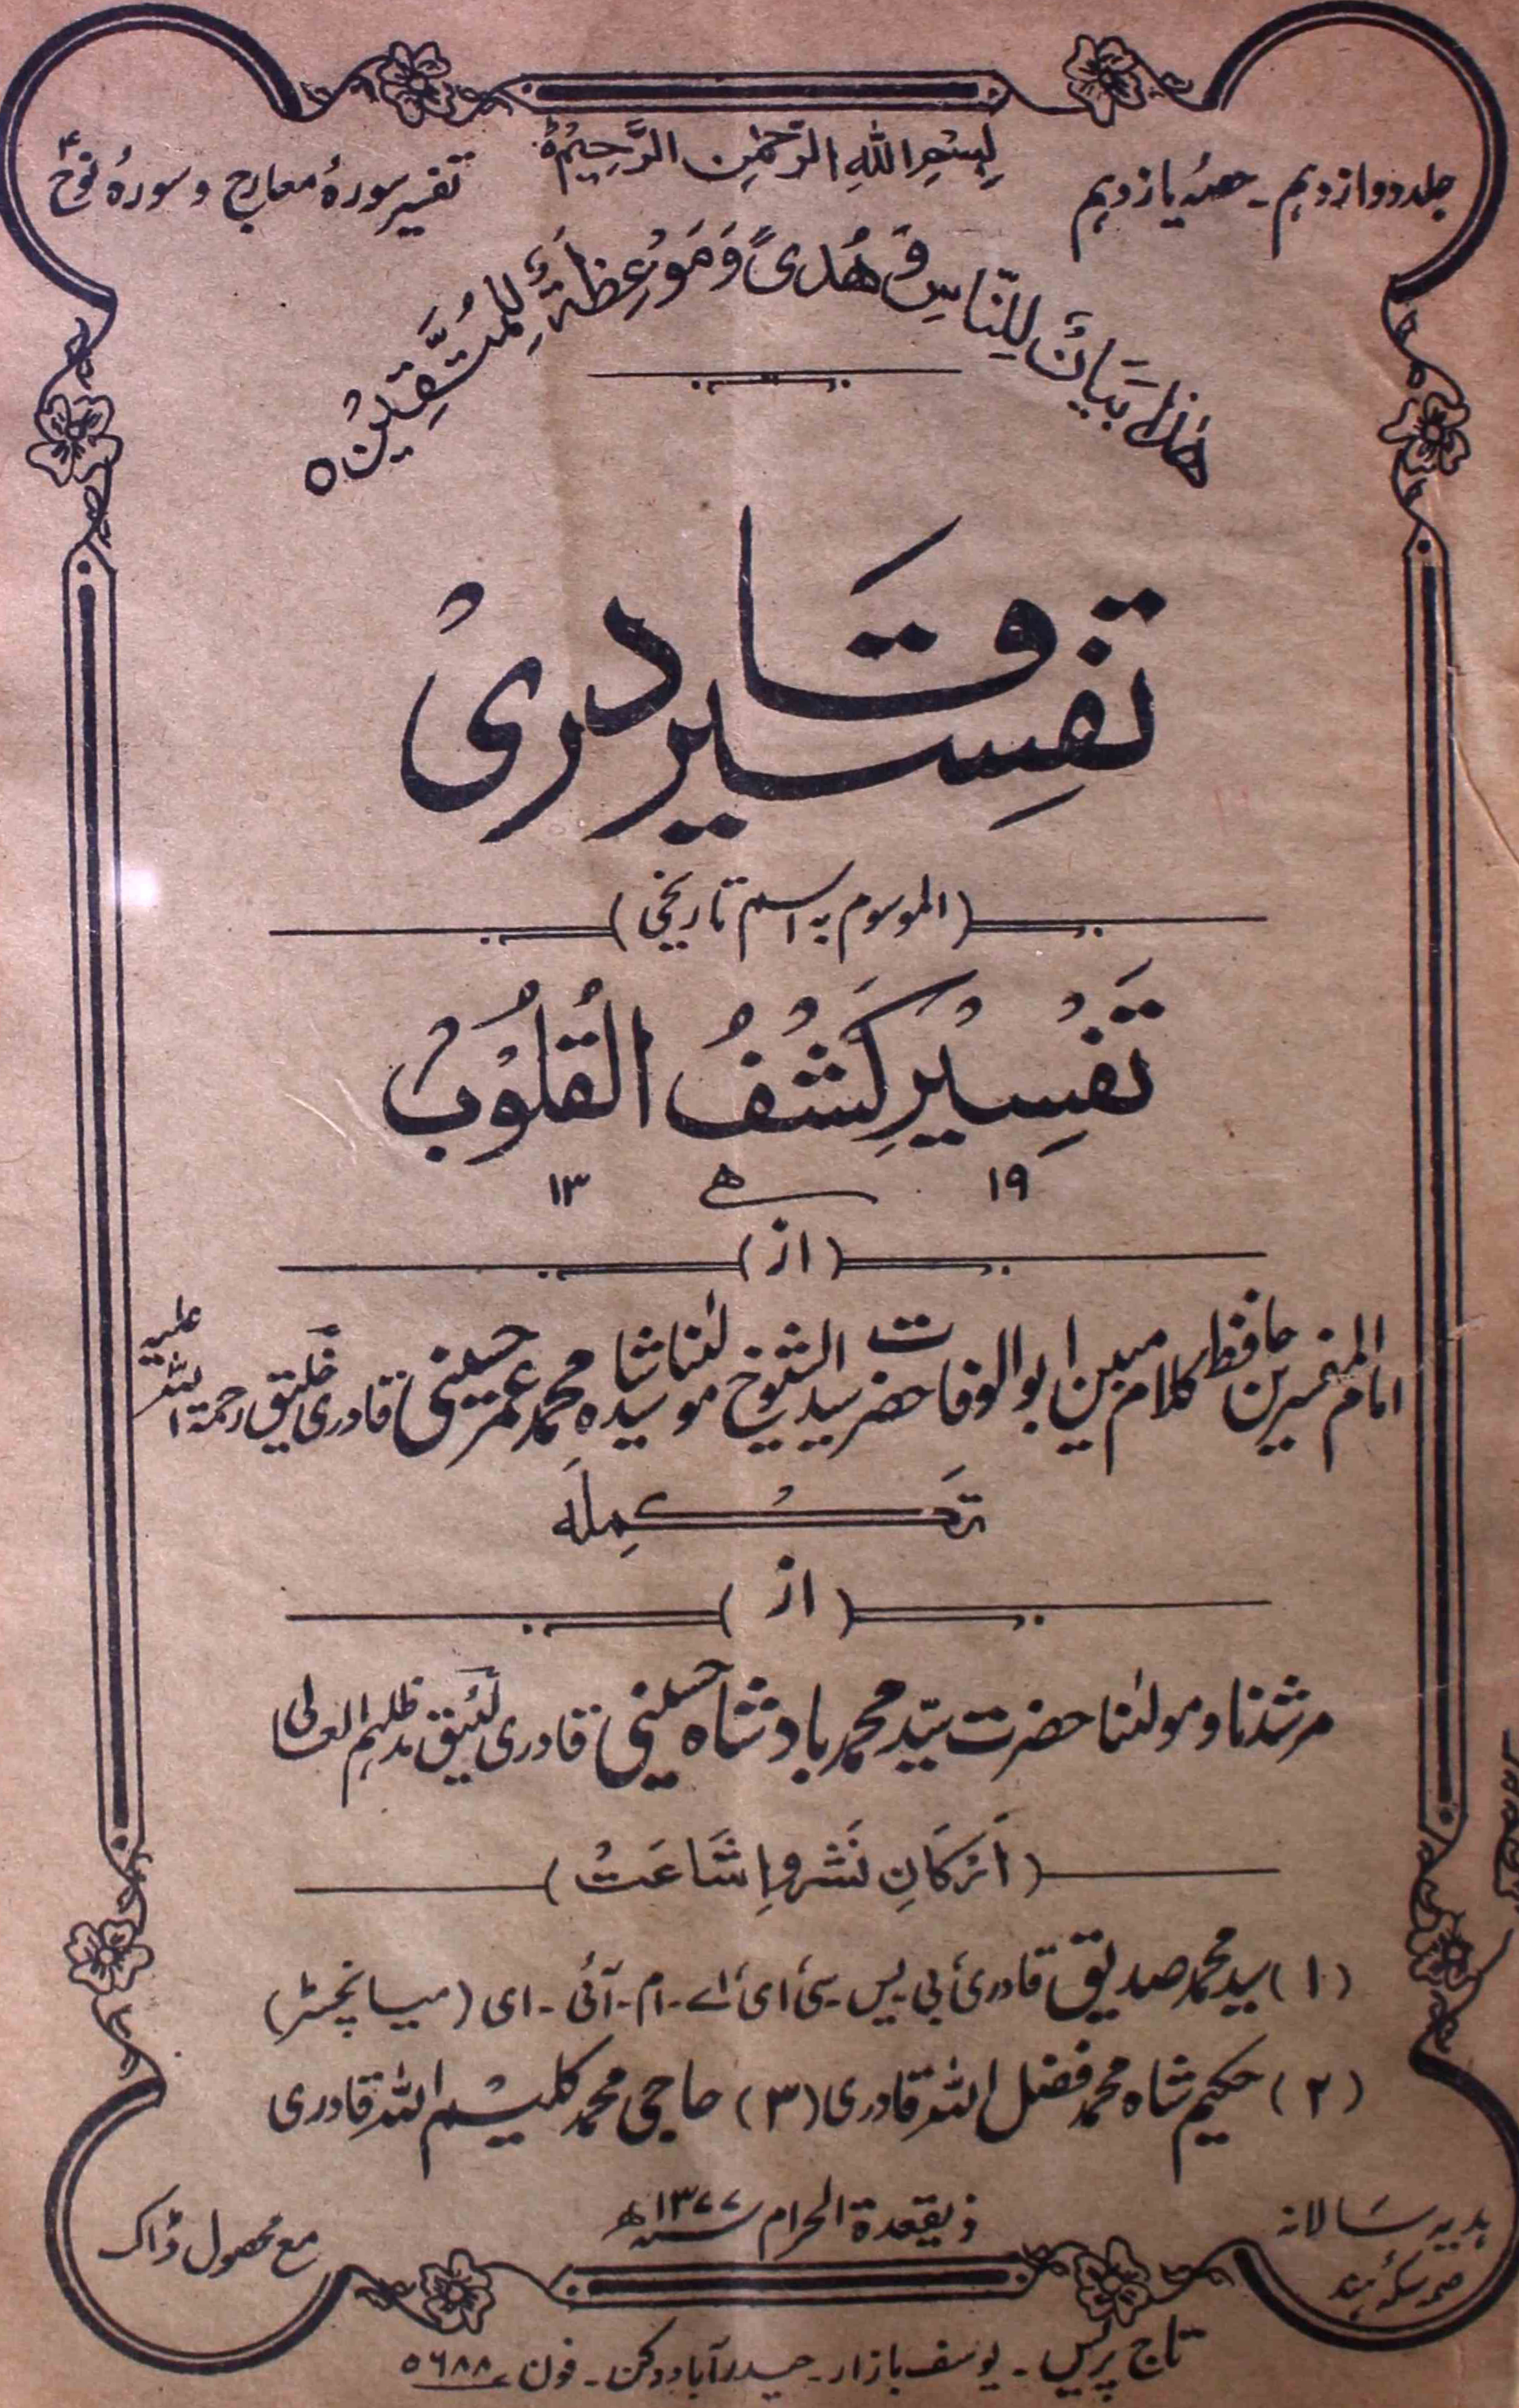 بِسْمِ اللهِ الرَّحْمٰنِ الرَّحِيْمِ
جلد دوازدہم - حصۂ یازدہم
تفسیر سورۂ معارج و سورۂ نوح
هٰذَا بَيَانٌ لِلنَّاسِ وَ هُدًى وَ مَوْعِظَةٌ لِلْمُتَّقِيْنَ ۝
تفسیر قادری
(الموسوم بہ اسم تاریخی)
تَفْسِيْرِ كَشْفُ الْقُلُوْبْ
۱۹ ھ ۱۳
(از)
امام المفسرین حافظ کلام مبین ابوالوفا حضرت سید الشیوخ مولٰنا سید شاہ محمد عمر حسینی قادری خلیق رحمۃ اللہ علیہ
تکملہ
(از)
مرشدنا و مولٰنا حضرت سیّد محمد بادشاہ حسینی قادری لئیق مدظلہم العالی
(اَرْکَانِ نَشْر و اِشَاعَتْ)
(۱) سید محمد صدیق قادری بی یس۔ سی ای اے۔ ام۔ آئی۔ ای (میسانچسٹر)
(۲) حکیم شاہ محمد فضل اللہ قادری (۳) حاجی محمد کلیم اللہ قادری
ذیقعدۃ الحرام ۱۳۷۷ھ
ہدیہ سَالانہ
مع محصول ڈاک
تاج پریس۔ یوسف بازار۔ حیدرآباد دکن۔ فون ۵۶۸۸